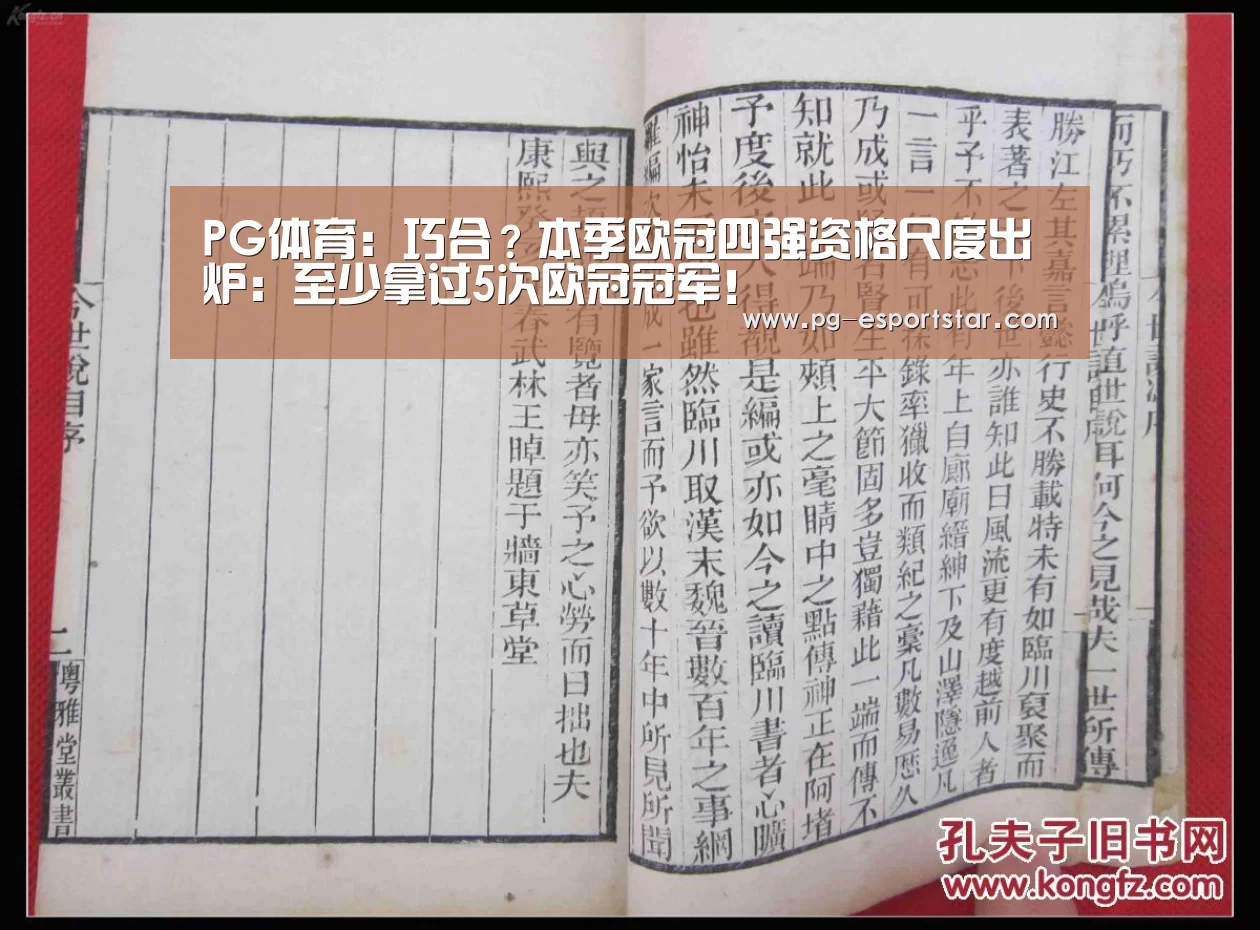 PG体育：巧合？本季欧冠四强资格尺度出
炉：至少拿过5次欧冠冠军！
www.pg-esportstar.com
而巧不累理嗚呼直世說耳何今之見哉夫一世所傳
勝江左其嘉言懿行史不勝載特未有如臨川裒聚而
表著之下後世亦誰知此日風流更有度越前人者
乎予不忘此有年上自廊廟縉紳下及山澤隱逸凡
一言一有可採錄率獵收而類紀之稾凡數易歷久
乃成或名賢生平大節固多豈獨藉此一端而傳不
知就此端乃如頰上之毫睛中之點傳神正在阿堵
予度後人得覩是編或亦如今之讀臨川書者心曠
神怡未也雖然臨川取漢末魏晉數百年之事網
羅編次成一家言而予欲以數十年中所見所聞
與之有覽者毋亦笑予之心勞而日拙也夫
康熙癸春武林王晫題于牆東草堂
今世說自序
二
粵雅堂叢書
孔夫子旧书网
www.kongfz.com